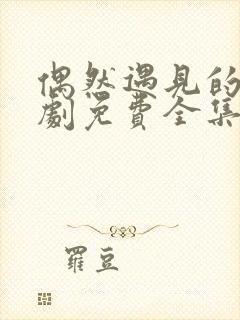 偶然遇见的
劇免費全集
羅豆